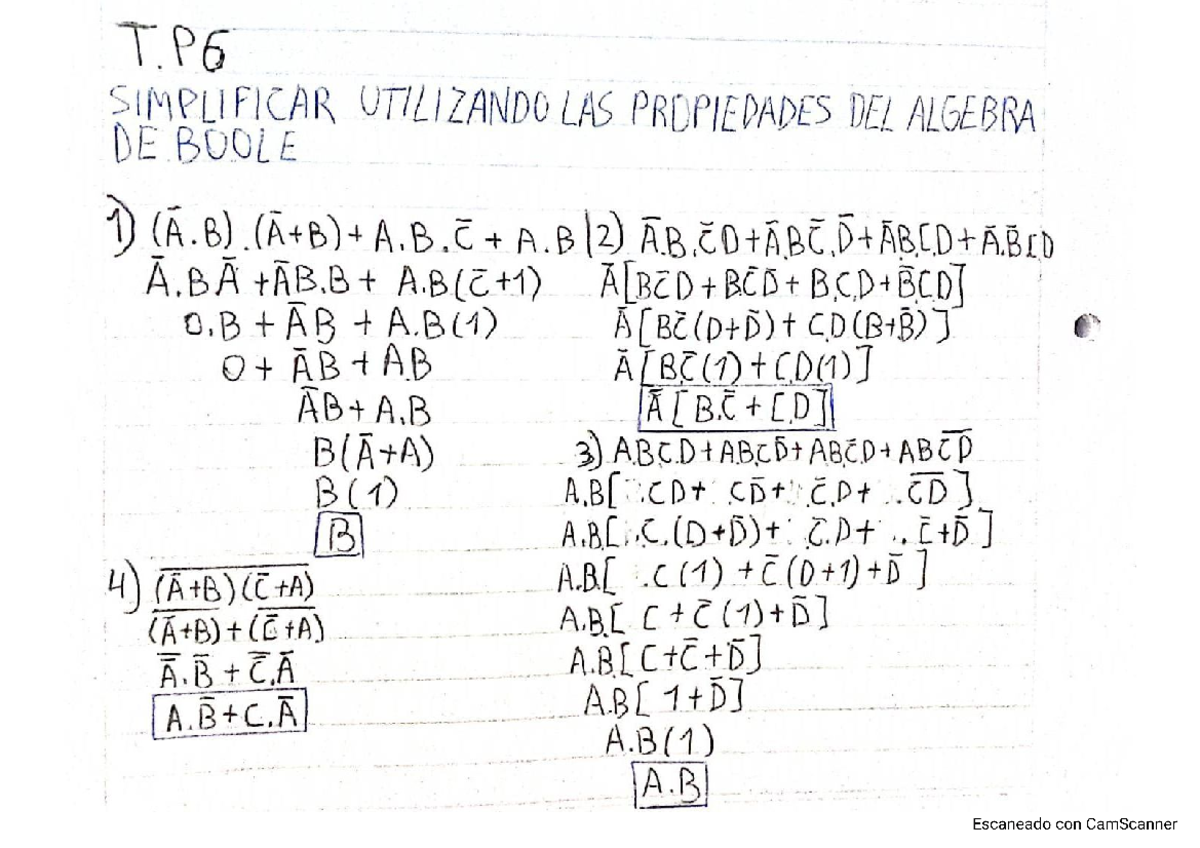 T.P6
SIMPLIFICAR UTILIZANDO LAS PROPIEDADES DEL ALGEBRA
DE BOOLE
1) (Ā.B).(Ā+B)+A.B.C̄+A.B
Ā.BĀ+ĀB.B+A.B(C̄+1)
0.B+ĀB+A.B(1)
0+ĀB+A.B
ĀB+A.B
B(Ā+A)
B(1)
B
2) Ā.B.C̄D+ĀBC̄.D̄+ĀB.C.D+Ā.B̄CD
Ā[BC̄D+BC̄D̄+B.C.D+B̄.C.D]
Ā[BC̄(D+D̄)+C.D(B+B̄)]
Ā[B.C̄(1)+C.D(1)]
Ā[B.C̄+C.D]
3) A.B.C.D+A.B.CD̄+ABC̄.D+ABC̅D̅
A.B[CD+CD̄+C̄.D+C̅D̅]
A.B[C.(D+D̄)+C̄.D+C̄+D̄]
A.B.[C(1)+C̄(D+1)+D̄]
A.B.[C+C̄(1)+D̄]
A.B.[C+C̄+D̄]
A.B[1+D̄]
A.B(1)
A.B
4) (̅A̅̅+̅B̅)̅(̅C̅̅+̅A̅)̅
(̅A̅̅+̅B̅)̅+(̅C̅̅+̅A̅)̅
A̅̅.B̄+C̅̅.Ā
A.B̄+C.Ā
Escaneado con CamScanner